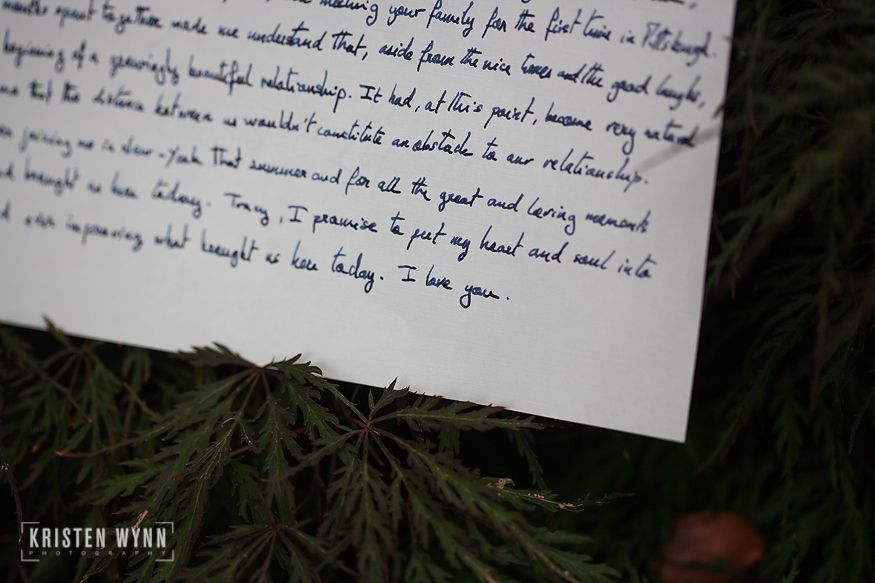 meeting your family for the first time in Pittsburgh.
months spent together made me understand that, aside from the nice times and the good laughs,
beginning of a growingly beautiful relationship. It had, at this point, become very natural
me that the distance between us wouldn't constitute an obstacle to our relationship.
joining me in New-York that summer and for all the great and loving moments
brought us here today. Tracy, I promise to put my heart and soul into
improving what brought us here today. I love you.
KRISTEN WYNN
PHOTOGRAPHY